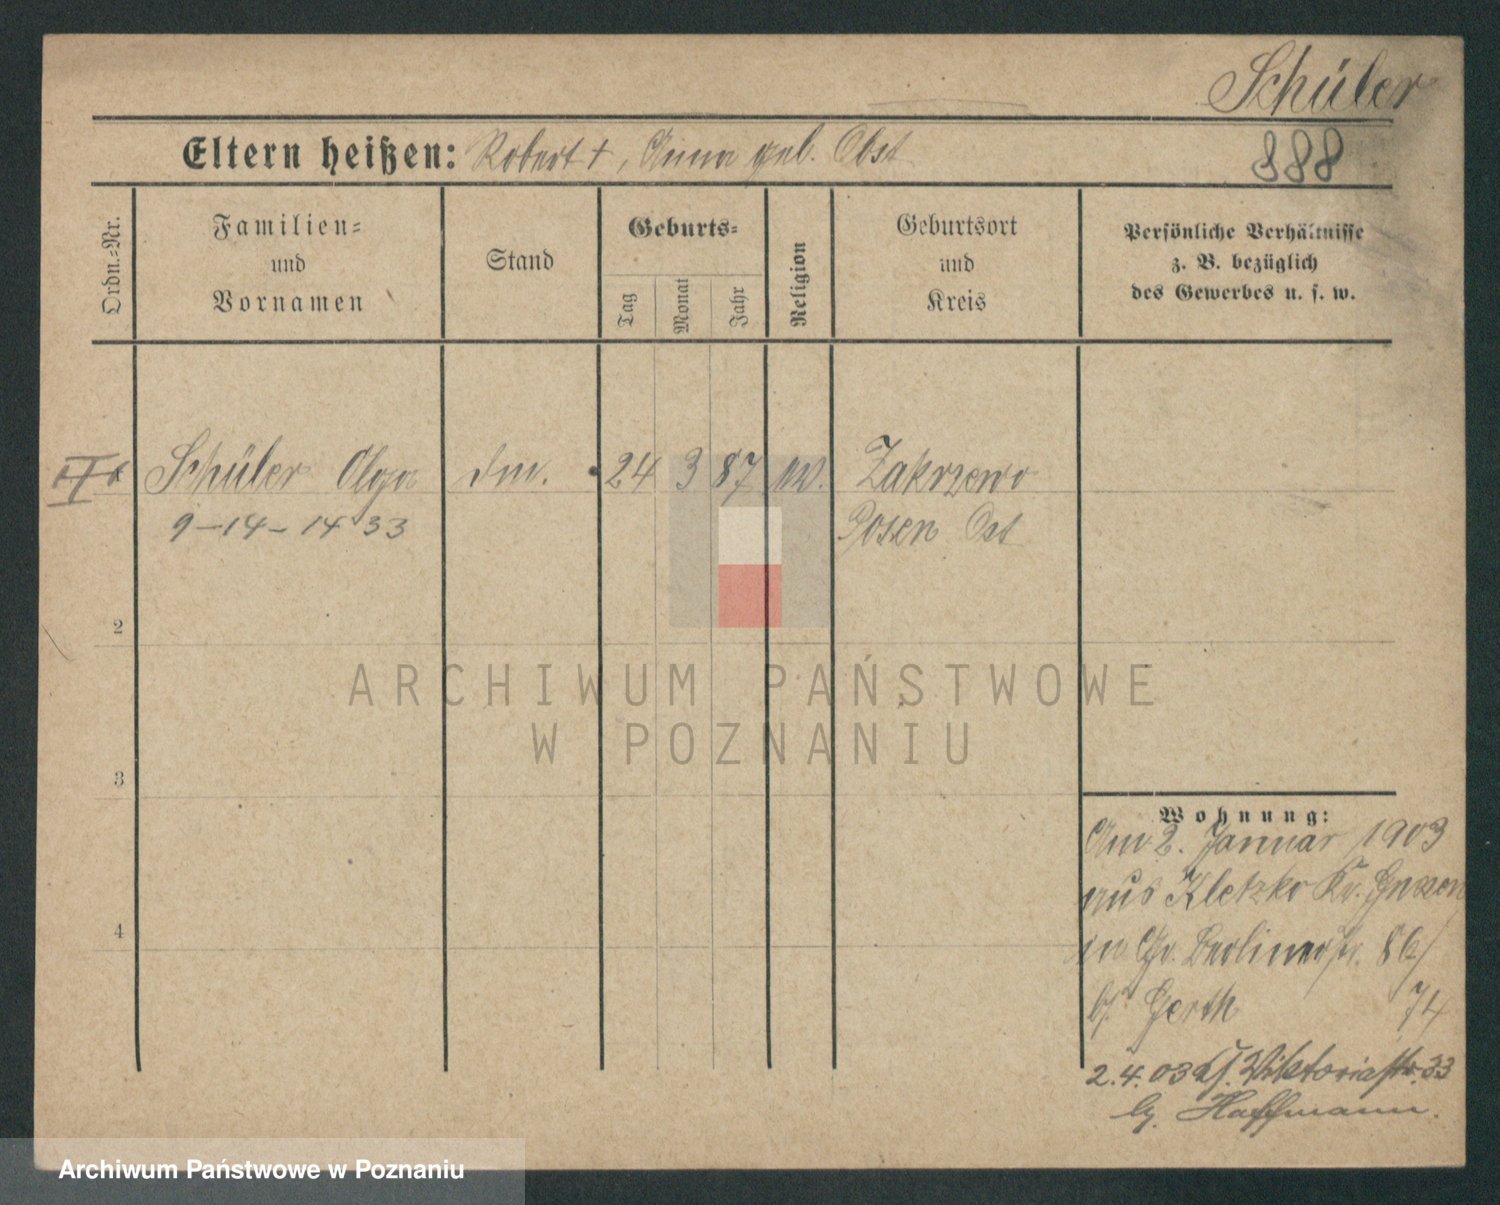 Schüler
Eltern heißen: Robert +, Anna geb. Obst
888
Ordn.-Nr.
Familien-
und
Vornamen
Stand
Geburts-
Tag
Monat
Jahr
Religion
Geburtsort
und
Kreis
Persönliche Verhältnisse
z. B. bezüglich
des Gewerbes u. s. w.
Schüler Olga
24 3 87
Zakrzewo
9-14-14 33
Posen Ost
2
3
4
ARCHIWUM PAŃSTWOWE
W POZNANIU
Wohnung:
Am 2. Januar 1903
aus Kletzko Kr. Gnesen
Gr. Berlinerstr. 86/
74
b/ Gerth
2.4.03 Viktoriastr. 33
Haffmann.
Archiwum Państwowe w Poznaniu